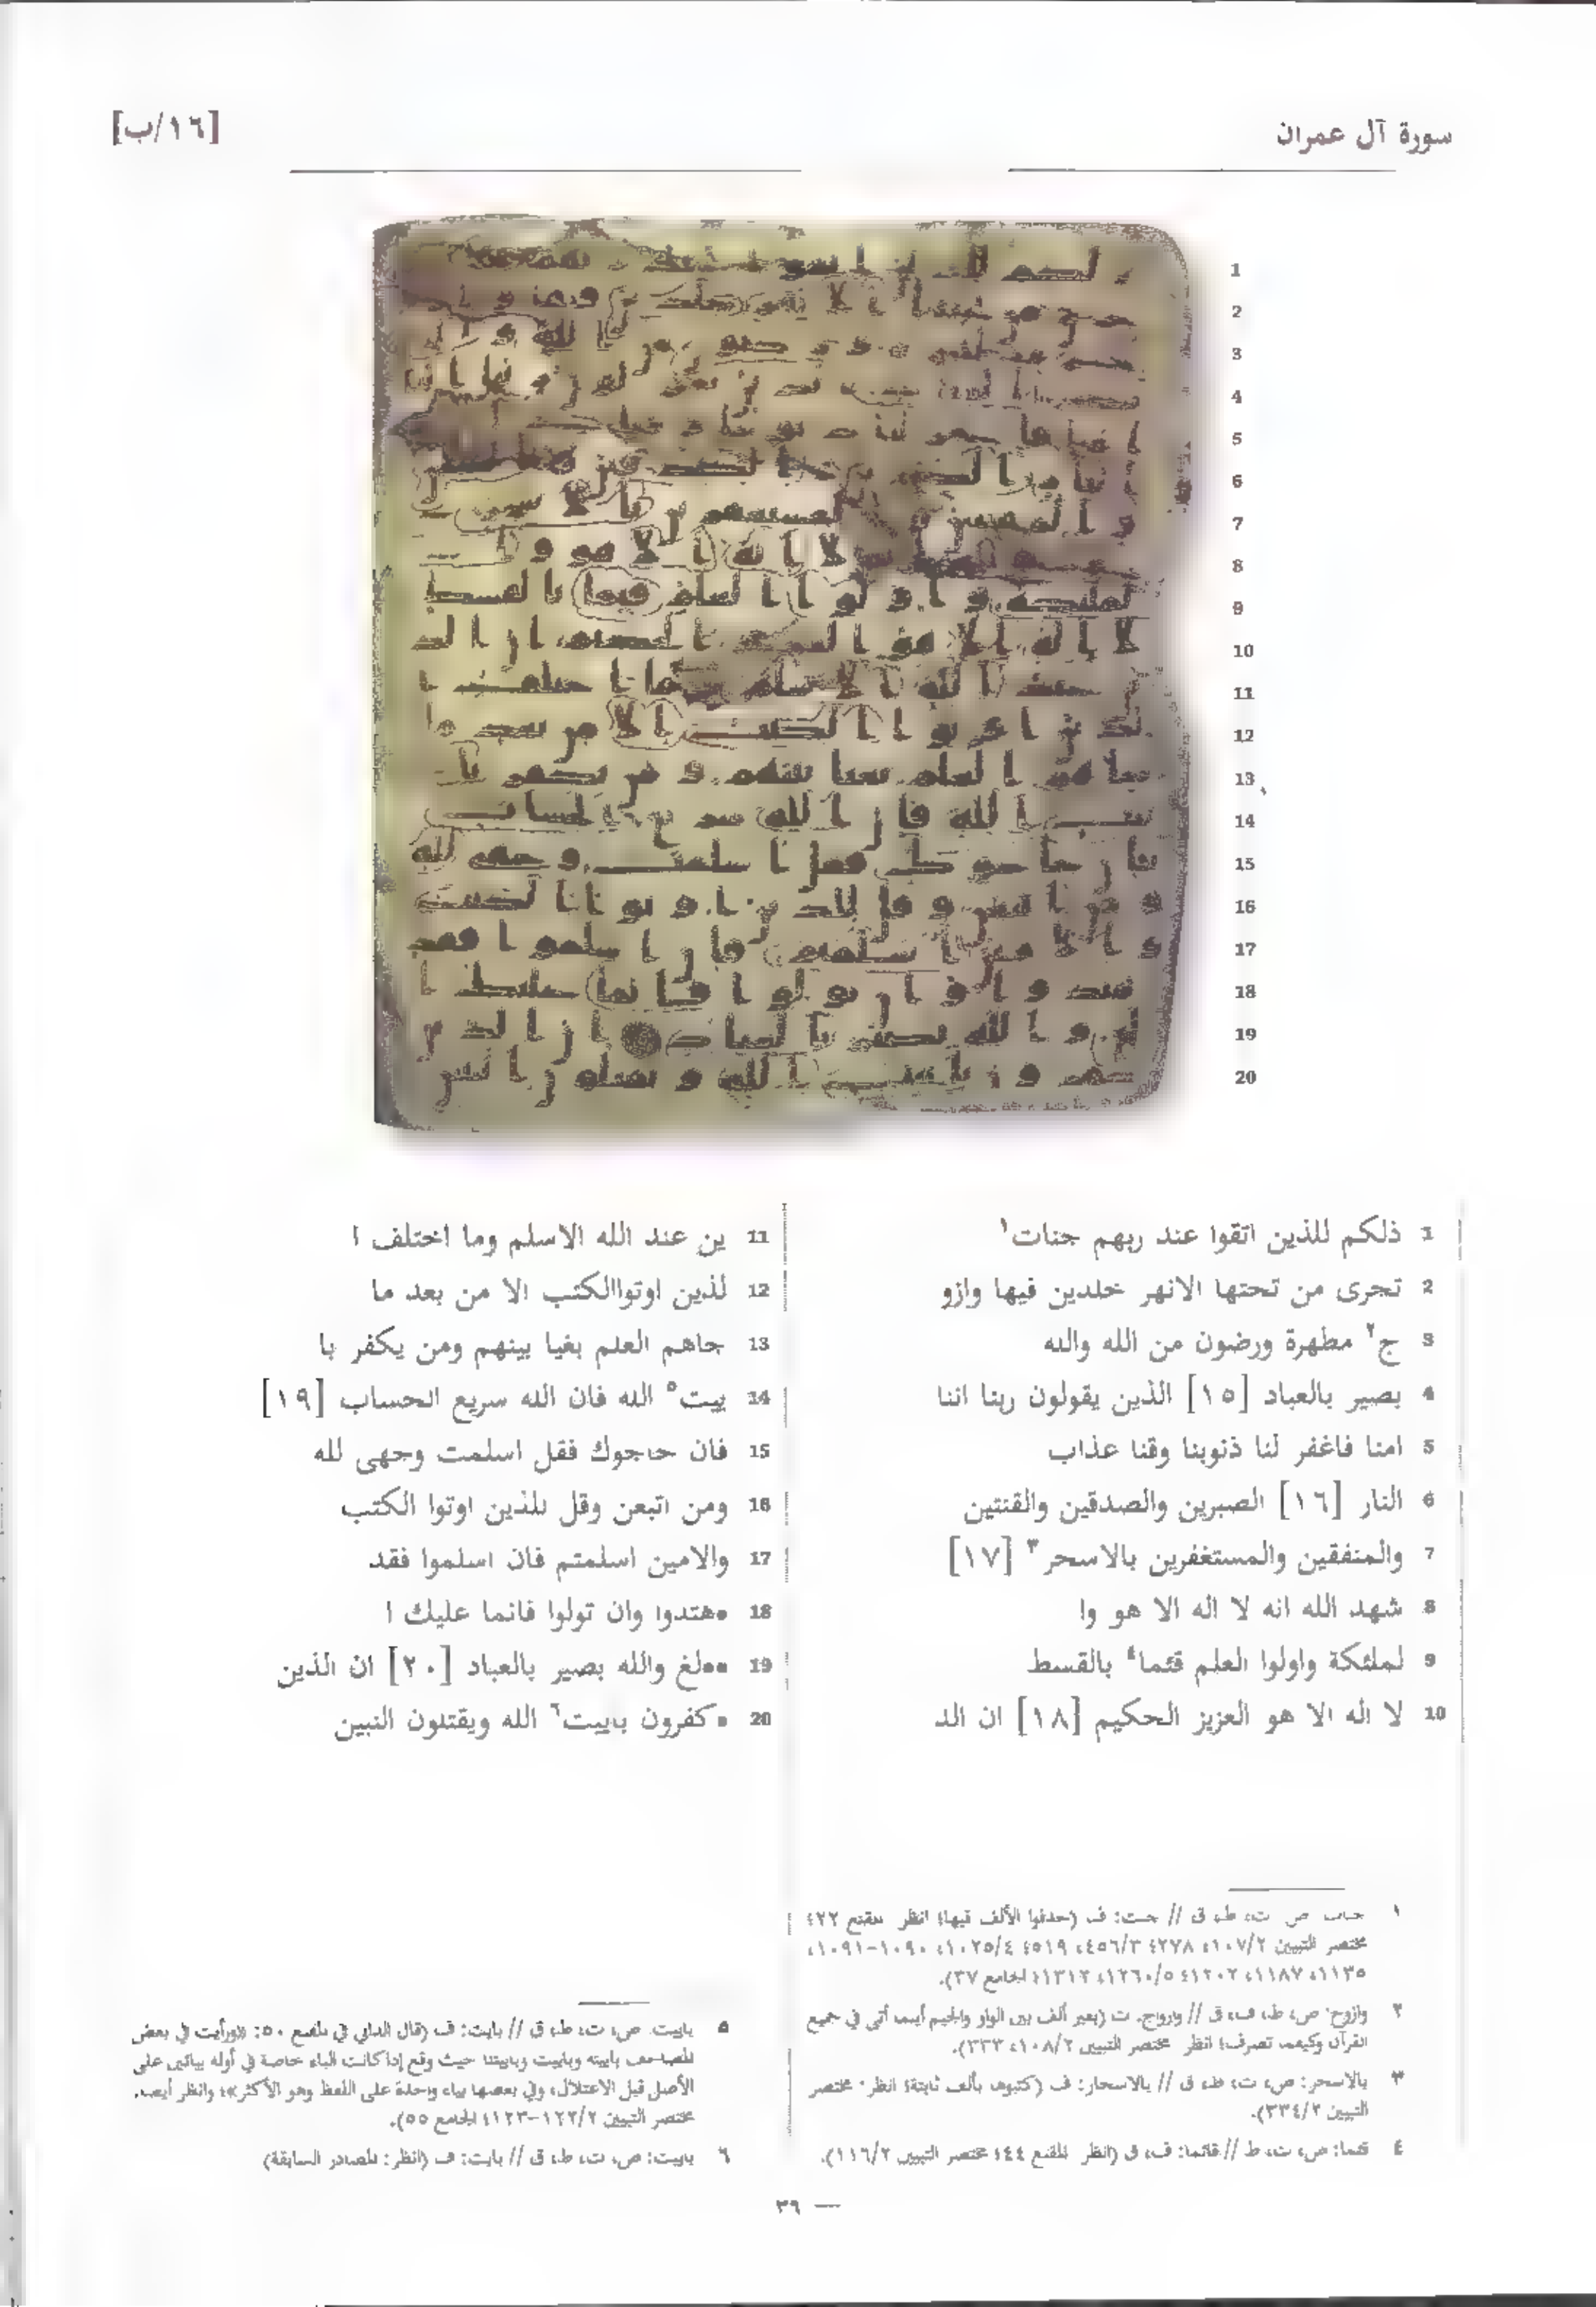 سورة آل عمران
[١٦/ب]
1 ذلكم للذين اتقوا عند ربهم جنات١
2 تجرى من تحتها الانهر خلدين فيها وازو
3 ج٢ مطهرة ورضون من الله والله
4 بصير بالعباد [١٥] الذين يقولون ربنا اننا
5 امنا فاغفر لنا ذنوبنا وقنا عذاب
6 النار [١٦] الصبرين والصدقين والقنتين
7 والمنفقين والمستغفرين بالاسحر٣ [١٧]
8 شهد الله انه لا اله الا هو وا
9 لملئكة واولوا العلم قئما٤ بالقسط
10 لا اله الا هو العزيز الحكيم [١٨] ان الد
11 ين عند الله الاسلم وما اختلف ا
12 لذين اوتواالكتب الا من بعد ما
13 جاهم العلم بغيا بينهم ومن يكفر با
14 ييت٥ الله فان الله سريع الحساب [١٩]
15 فان حاجوك فقل اسلمت وجهى لله
16 ومن اتبعن وقل للذين اوتوا الكتب
17 والامين اسلمتم فان اسلموا فقد
18 •هتدوا وان تولوا فانما عليك ا
19 ••لغ والله بصير بالعباد [٢٠] ان الذين
20 •كفرون باييت٦ الله ويقتلون النبين
١ ص، ت، ط، ق // جنت: ف (حذفوا الألف فيها؛ انظر المقنع ٤٢٢
مختصر التبيين ١٠٧/٢، ٢٧٨؛ ٤٥٦/٣، ٥١٩؛ ١٠٢٥/٤، ١٠٩٠-١٠٩١،
١١٣٥، ١١٨٧، ١٢٠٢؛ ١٢٦٠/٥، ١٣١٢؛ الجامع ٣٧).
٢ وازوج: ص، ط، ف، ق // وازواج: ت (بغير ألف بين الواو والجيم أينما أتى في جميع
القرآن وكيفما تصرف؛ انظر مختصر التبيين ١٠٨/٢، ٣٣٣).
٣ بالاسحر: ص، ت، ط، ق // بالاسحار: ف (كتبوها بألف ثابتة؛ انظر: مختصر
التبيين ٣٣٤/٢).
٤ قئما: ص، ت، ط // قائما: ف، ق (انظر المقنع ٤٤؛ مختصر التبيين ١١٦/٢).
٥ باييت: ص، ت، ط، ق // بايت: ف (قال الداني في المقنع ٥٠: «ورأيت في بعض
المصاحف باييته وباييت وباييتنا حيث وقع إذا كانت الباء خاصة في أوله بيائين على
الأصل قبل الاعتلال، وفي بعضها بياء واحدة على اللفظ وهو الأكثر»؛ وانظر أيضا:
مختصر التبيين ١٢٢/٢-١٢٣؛ الجامع ٥٥).
٦ باييت: ص، ت، ط، ق // بايت: ف (انظر: المصادر السابقة)
— ٣٩